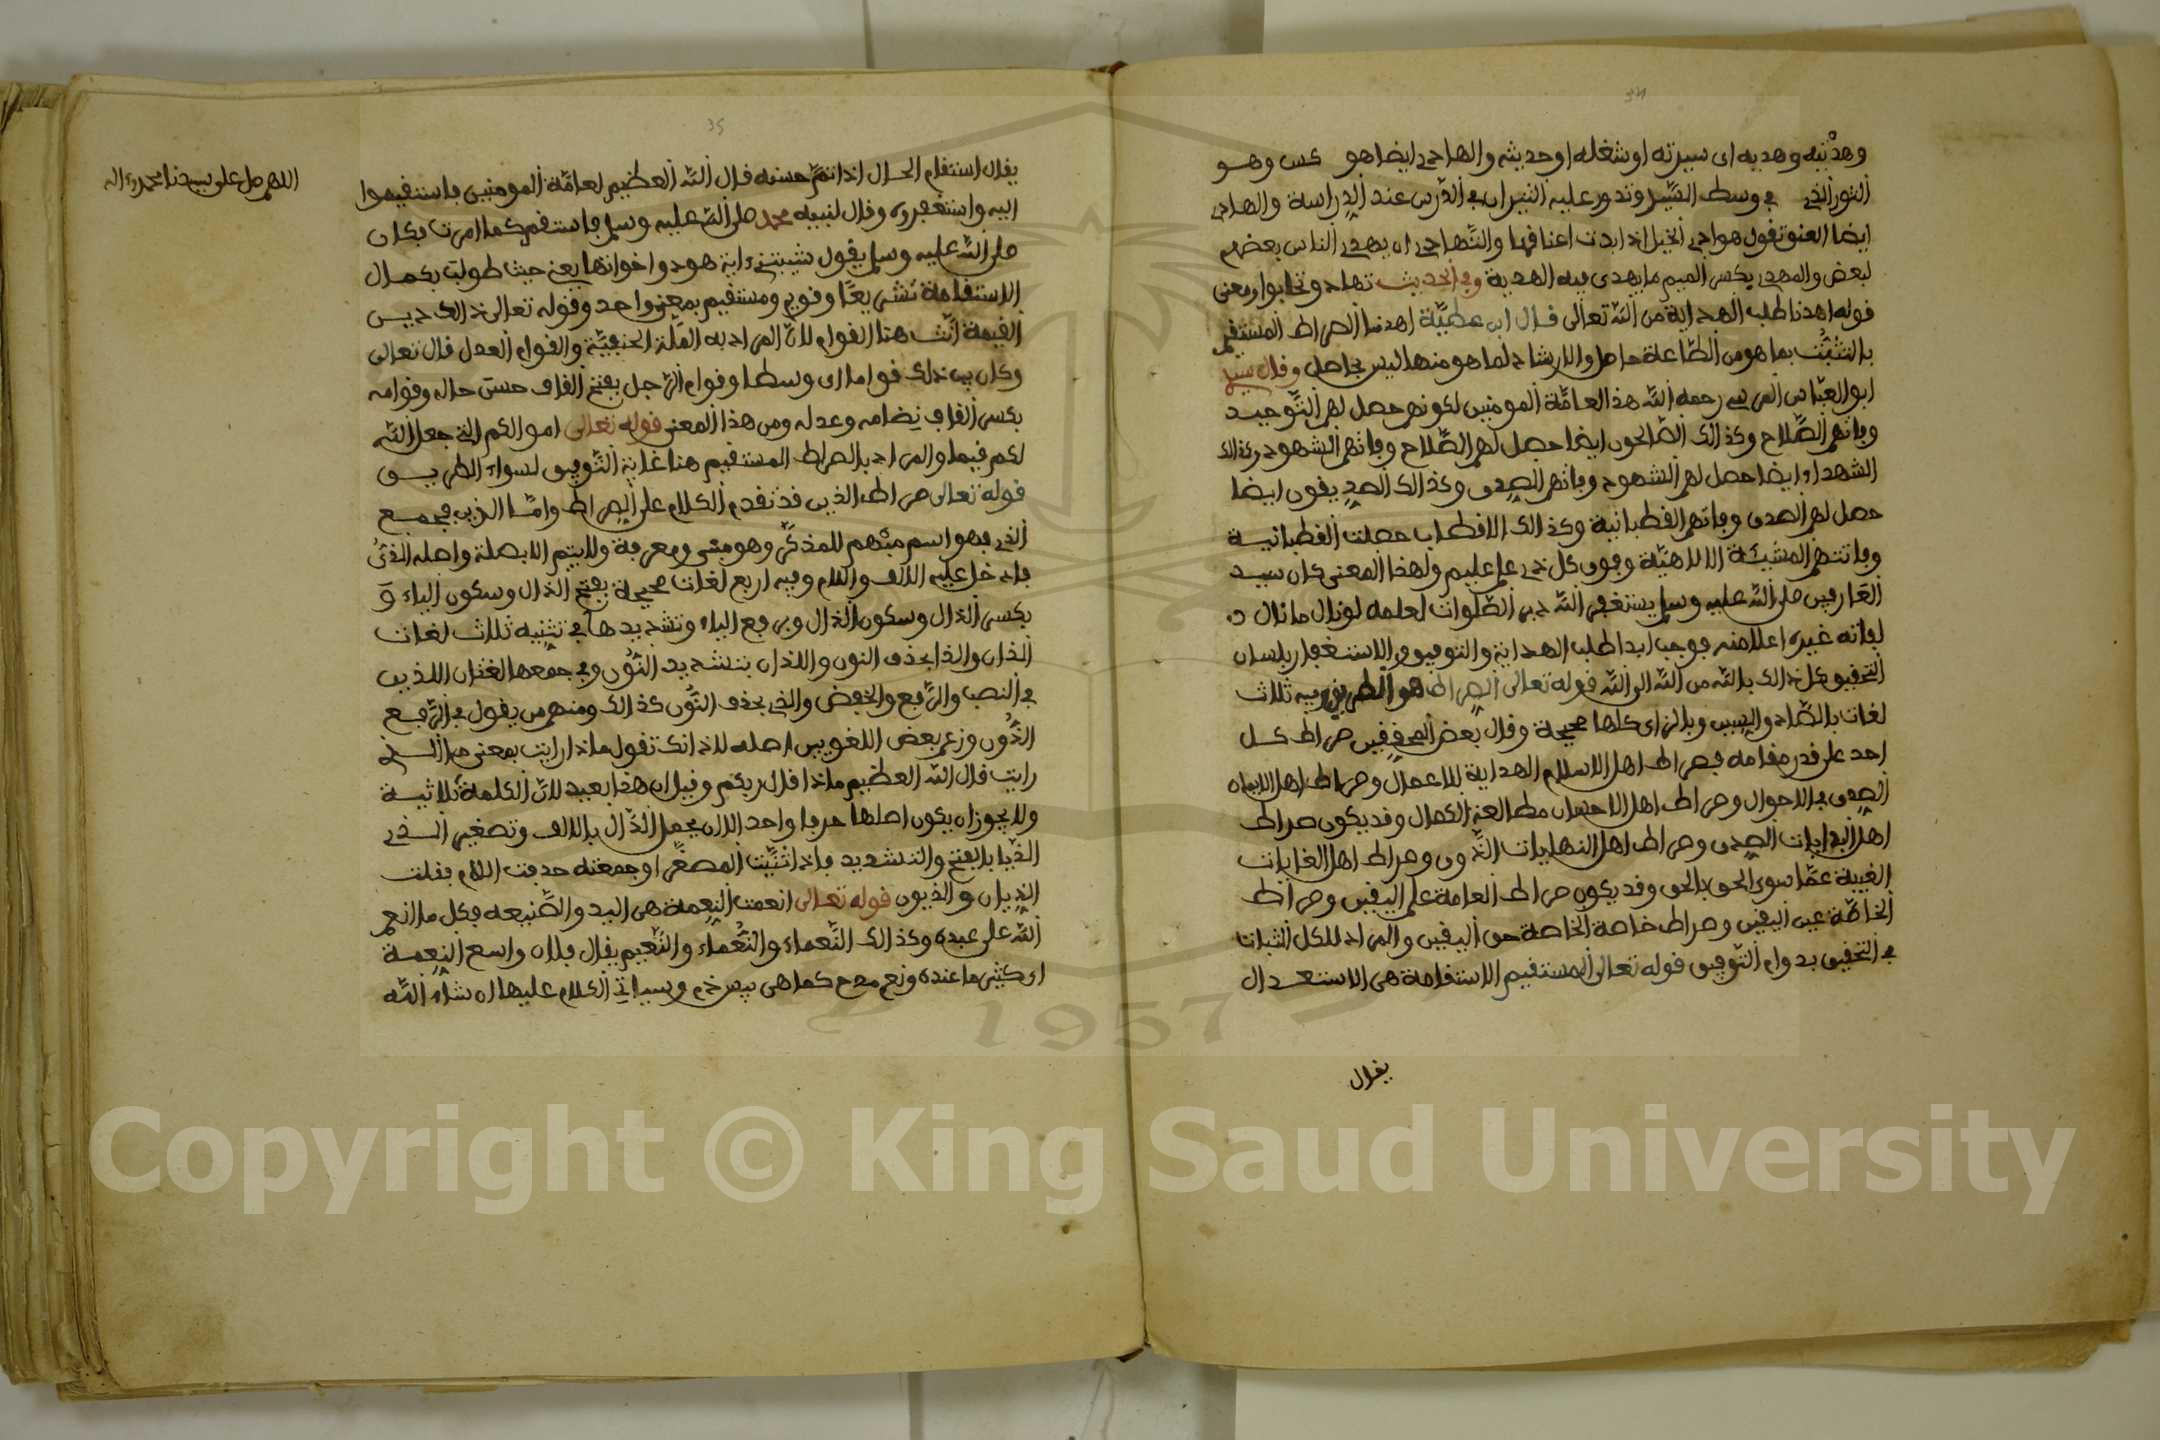 34
وهدْنيه وهديه اى سيرته او شغله او حديثه والهادى ايضا هو وهو
الثور الذى فى وسط وتدور عليه الثيران فى الدرس عند الدراسة والهادى
ايضا العنق تقول هوادى الخيل اذا بدت اعناقها والتهادى ان يهدى الناس بعضهم
لبعض والمهدى بكسر الميم ما يهدى فيه الهدية وفى الحديث تهادوا تحابوا ومعنى
قوله اهدنا طلب الهداية من الله تعالى قال ابن عطيّة اهدنا الصراط المستقيم
بالتثبّت بما هو من الطّاعة حاصل والارشاد لما هو منها ليس بحاصل وقال سيدى
ابو العبّاس المرسى رحمه الله هذا لعامّة المومنين لكونهم حصل لهم التّوحيد
وفاتهم الصّلاح وكذالك الصّالحون ايضا حصل لهم الصّلاح وفاتهم الشهود وكذالك
الشهداء ايضا حصل لهم الشهود وفاتهم الصدق وكذالك الصديقون ايضا
حصل لهم الصدق وفاتهم القطبانية وكذالك الاقطاب حصلت القطبانية
وفاتتهم المشيئة الالاهيّة وفوق كل ذى علم عليم ولهذا المعنى كان سيد
العارفين صلى الله عليه وسلم يستغفر الله دبر الصّلوات لعلمه لو نال ما نال
لفاته غيره اعلا منه فوجب ابدا طلب الهداية والتوفيق والاستغفار بلسان
التحقيق كل ذالك بالله من الله الى الله قوله تعالى الصراط هو الطريق وفيه ثلاث
لغات بالصّاد والسين وبالزاى كلها صحيحة وقال بعض المحققين صراط كل
احد على قدر مقامه فصراط اهل الاسلام الهداية للاعمال وصراط اهل الايمان
الصدق فى الاحوال وصراط اهل الاحسان مطالعة الكمال وقد يكون صراط
اهل البدايات الصدق وصراط اهل النهايات الذّوق وصراط اهل الغايات
الغيبة عمّا سوى الحق بالحق وقد يكون صراط العامة علم اليقين وصراط
الخاصّة عين اليقين وصراط خاصة الخاصة حق اليقين والمراد للكل الثبات
فى التحقيق بدوام التّوفيق قوله تعالى المستقيم الاستقامة هى الاستعدال
يقال
35
يقال استقام الحال اذا تمّ حسنه قال الله العظيم لعامّة المومنين فاستقيموا
اليه واستغفروه وقال لنبيه محمد صلى الله عليه وسلم فاستقم كما امرت فكان
صلى الله عليه وسلم يقول شيبتنى ءاية هود واخواتها يعنى حيث طولب بكمال
الاستقامة تشريعًا وقويم ومستقيم بمعنى واحد وقوله تعالى ذالك دين
القيمة انّث هنا القوام لانّ المراد به الملّة الحنيفيّة والقوام العدل قال تعالى
وكان بين ذلك قواما اى وسطا وقوام الرّجل بفتح القاف حسن حاله وقوامه
بكسر القاف نضامه وعدله ومن هذا المعنى قوله تعالى اموالكم التى جعل الله
لكم قيما والمراد بالصراط المستقيم هنا غاية التّوفيق لسواء الطريق
قوله تعالى صراط الذين قد تقدم الكلام على الصراط وامّا الذين فجمع
الذى فهو اسم مبْهم للمذكّر وهو مبنى ومعرفة ولا يتم الا بصلة واصله الذىُ
فادخل عليه الالف واللام وفيه اربع لغات صحيحة بفتح الذال وسكون الياء وَ
بكسر الذال وسكون الذال وبرفع الياء وتشديدها فى تثنيه ثلاث لغات
الذان والذا بحذف النون واللذان بتشديد النّون وفى جمعها لغتان اللذين
فى النصب والرّفع والخفض والذى بحذف النّون كذالك ومنهم من يقول فى الرّفع
الذُون وزعم بعض اللغويين اصله ذا لانك تقول ماذا رايت بمعنى ما الذى
رايت قال الله العظيم ماذا قال ربكم وقيل ان هذا بعيد لانّ الكلمة ثلاثية
ولا يجوز ان يكون اصلها حرفا واحد الا ان يجعل الذّال بالالف وتصغير الذى
الذّيا بالفتح والتشديد فاذا ثنّيت المصغّر او جمعته حذفت اللام فقلت
الذيان والذيون قوله تعالى انعمت النِعمة هى اليد والصّنيعه وكل ما انعم
الله على عبده وكذالك النّعماء والنُّعماء والنّعيم يقال فلان واسع النعمة
اى كثير ما عنده ونعم مدح كما هى بيس ذم وسياتى الكلام عليها ان شاء الله
اللهم صل على سيدنا محمد وءاله
Copyright © King Saud University
1957